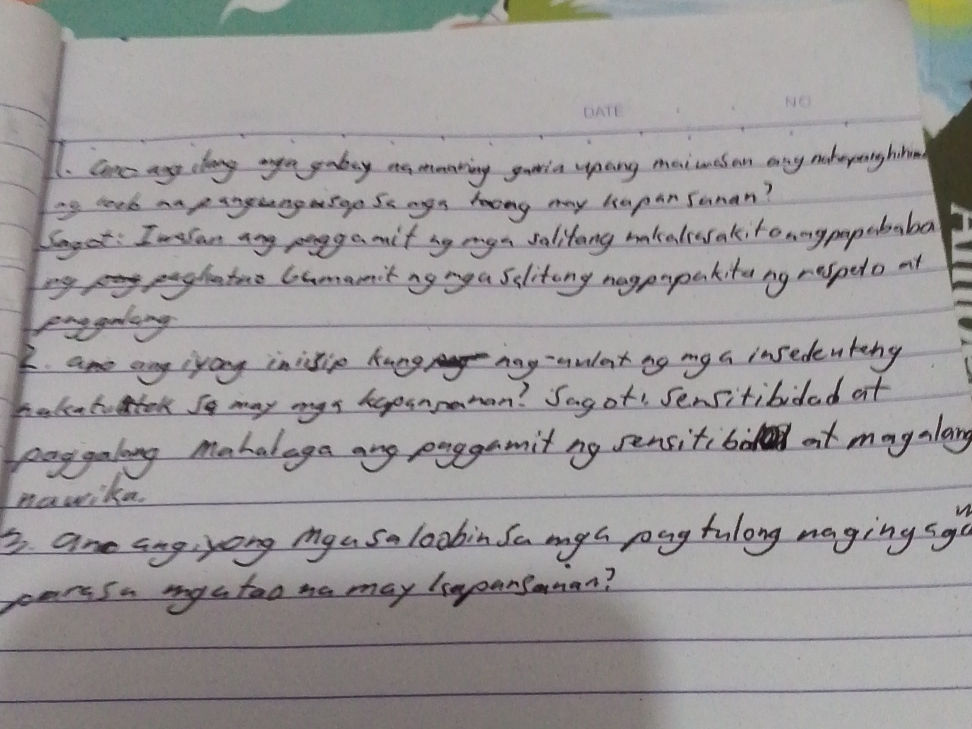 DATE NO
1. ano ang ilang mga gabay na maaring gawin upang maiwasan ang
ng na pangungusap sa mga taong may kapansanan?
Sagot: Iwasan ang paggamit ng mga salitang nakakasakit o nagpapababa
ng pagkatao Gumamit ng mga salitang nagpapakita ng respeto at
paggalang
2. ano ang iyong iniisip kung nag-uulat ng mga insedenteng
nakatutok sa may mga kapansanan? Sagot: Sensitibidad at
paggalang Mahalaga ang paggamit ng sensitibo at magalang
na wika.
3. ano ang iyong mga saloobin sa mga pagtulong na
para sa mga tao na may kapansanan?